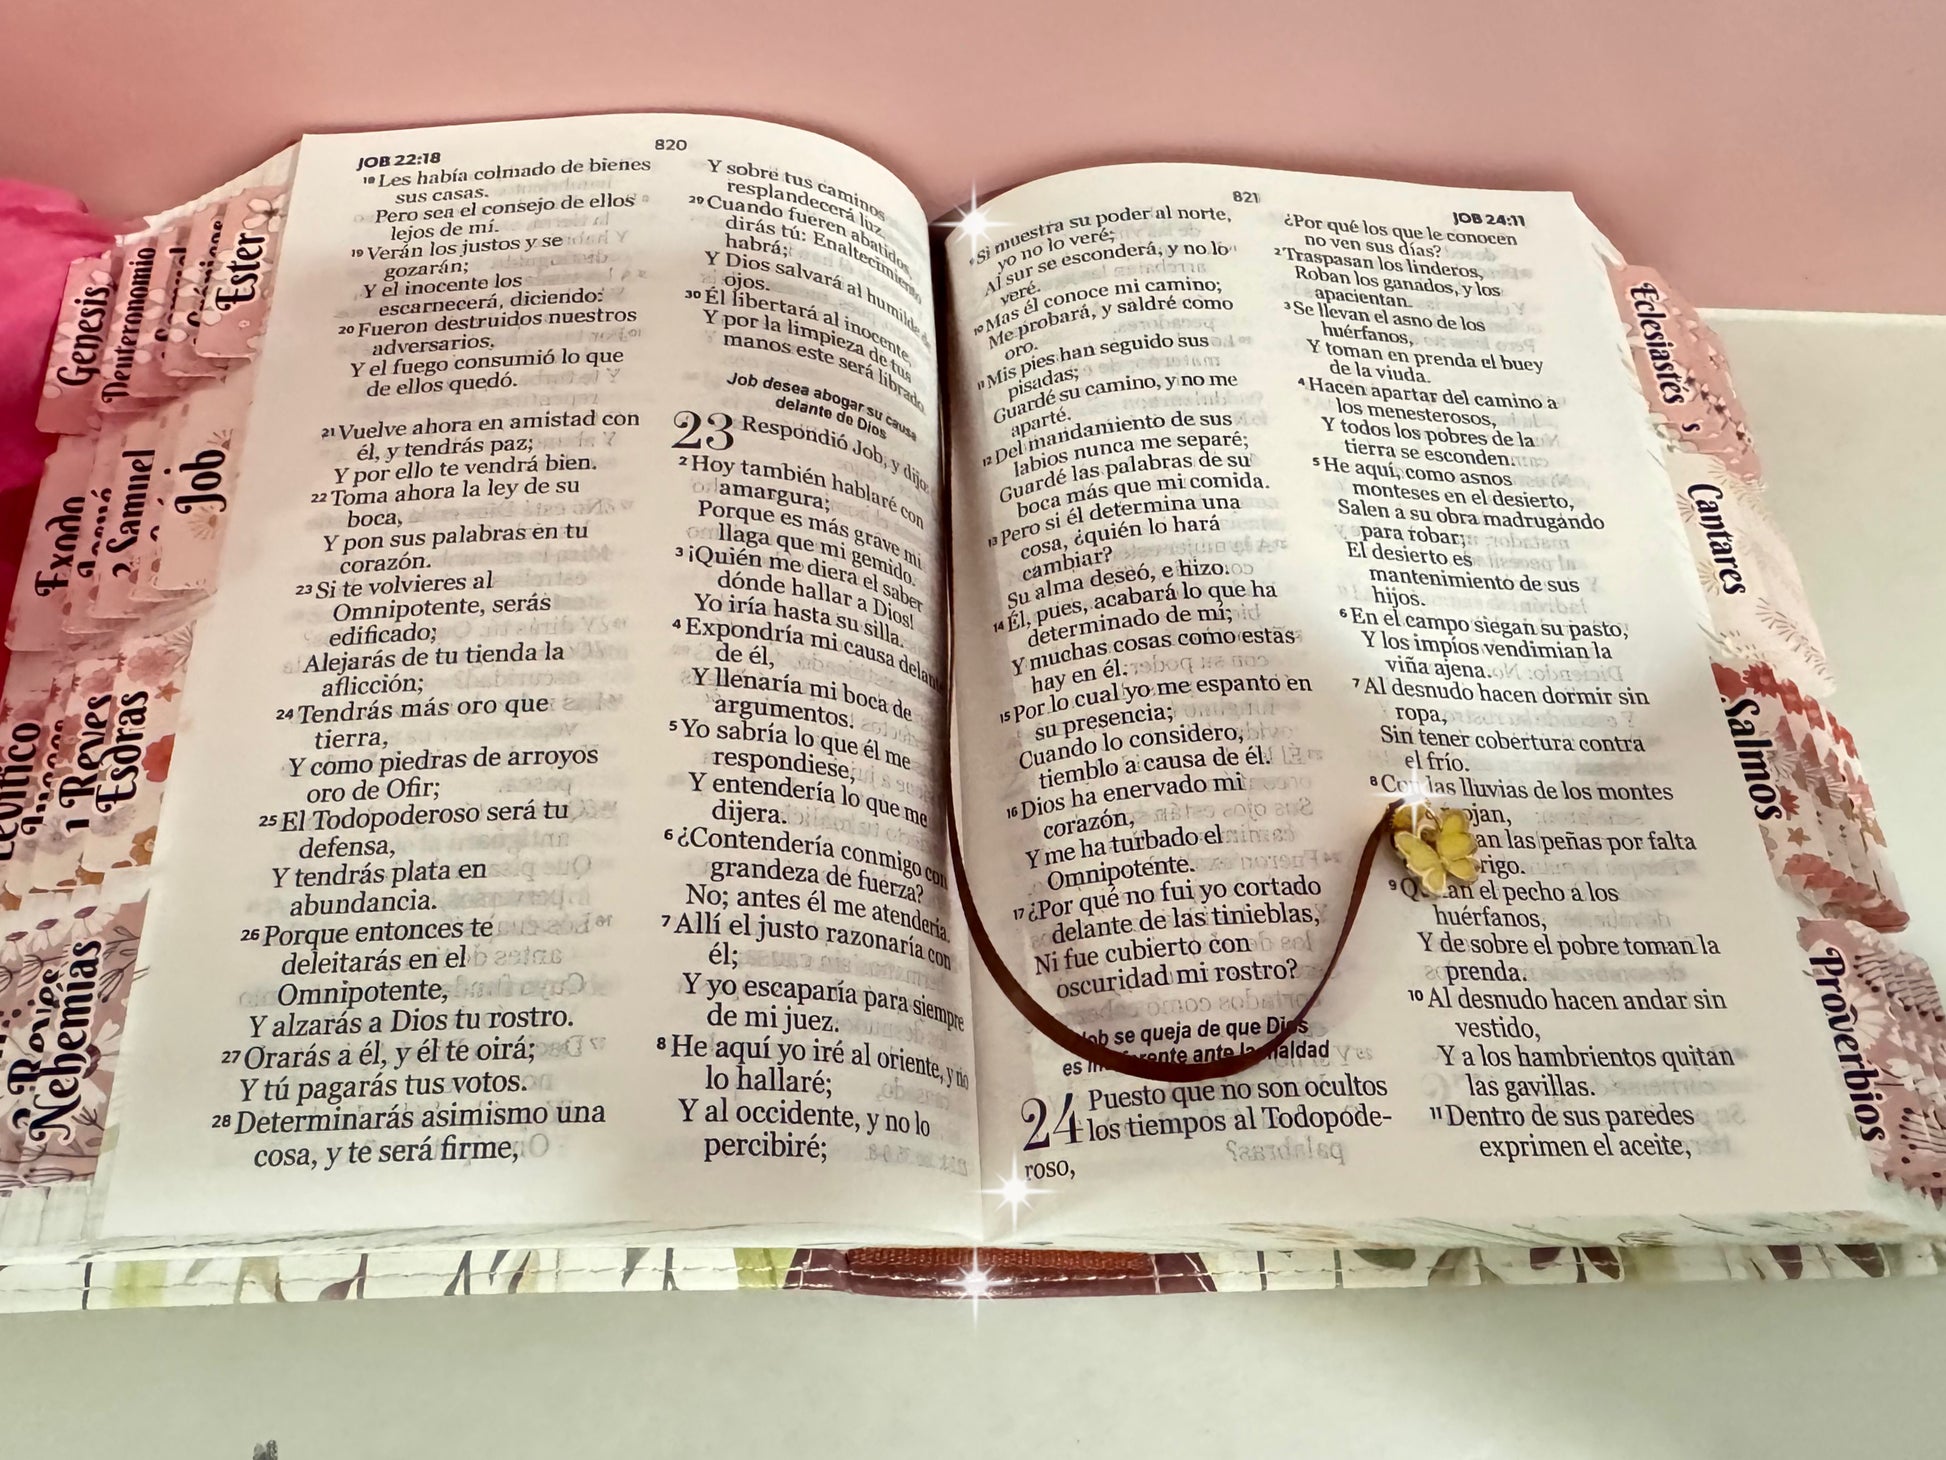 JOB 22:18
820
18 Les había colmado de bienes
sus casas.
Pero sea el consejo de ellos
lejos de mí.
19 Verán los justos y se
gozarán;
Y el inocente los
escarnecerá, diciendo:
20 Fueron destruidos nuestros
adversarios,
Y el fuego consumió lo que
de ellos quedó.
21 Vuelve ahora en amistad con
él, y tendrás paz;
Y por ello te vendrá bien.
22 Toma ahora la ley de su
boca,
Y pon sus palabras en tu
corazón.
23 Si te volvieres al
Omnipotente, serás
edificado;
Alejarás de tu tienda la
aflicción;
24 Tendrás más oro que
tierra,
Y como piedras de arroyos
oro de Ofir;
25 El Todopoderoso será tu
defensa,
Y tendrás plata en
abundancia.
26 Porque entonces te
deleitarás en el
Omnipotente,
Y alzarás a Dios tu rostro.
27 Orarás a él, y él te oirá;
Y tú pagarás tus votos.
28 Determinarás asimismo una
cosa, y te será firme,
Y sobre tus caminos
resplandecerá luz.
29 Cuando fueren abatidos,
dirás tú: Enaltecimiento
habrá;
Y Dios salvará al humilde de
ojos.
30 Él libertará al inocente,
Y por la limpieza de tus
manos este será librado.
Job desea abogar su causa
delante de Dios
23 Respondió Job, y dijo:
2 Hoy también hablaré con
amargura;
Porque es más grave mi
llaga que mi gemido.
3 ¡Quién me diera el saber
dónde hallar a Dios!
Yo iría hasta su silla.
4 Expondría mi causa delante
de él,
Y llenaría mi boca de
argumentos.
5 Yo sabría lo que él me
respondiese,
Y entendería lo que me
dijera.
6 ¿Contendería conmigo con
grandeza de fuerza?
No; antes él me atendería.
7 Allí el justo razonaría con
él;
Y yo escaparía para siempre
de mi juez.
8 He aquí yo iré al oriente, y no
lo hallaré;
Y al occidente, y no lo
percibiré;
821
JOB 24:11
9 Si muestra su poder al norte,
yo no lo veré;
Al sur se esconderá, y no lo
veré.
10 Mas él conoce mi camino;
Me probará, y saldré como
oro.
11 Mis pies han seguido sus
pisadas;
Guardé su camino, y no me
aparté.
12 Del mandamiento de sus
labios nunca me separé;
Guardé las palabras de su
boca más que mi comida.
13 Pero si él determina una
cosa, ¿quién lo hará
cambiar?
Su alma deseó, e hizo.
14 Él, pues, acabará lo que ha
determinado de mí;
Y muchas cosas como estas
hay en él.
15 Por lo cual yo me espanto en
su presencia;
Cuando lo considero,
tiemblo a causa de él.
16 Dios ha enervado mi
corazón,
Y me ha turbado el
Omnipotente.
17 ¿Por qué no fui yo cortado
delante de las tinieblas,
Ni fue cubierto con
oscuridad mi rostro?
Job se queja de que Dios
es ante la maldad
24 Puesto que no son ocultos
los tiempos al Todopode-
roso,
¿Por qué los que le conocen
no ven sus días?
2 Traspasan los linderos,
Roban los ganados, y los
apacientan.
3 Se llevan el asno de los
huérfanos,
Y toman en prenda el buey
de la viuda.
4 Hacen apartar del camino a
los menesterosos,
Y todos los pobres de la
tierra se esconden.
5 He aquí, como asnos
monteses en el desierto,
Salen a su obra madrugando
para robar;
El desierto es
mantenimiento de sus
hijos.
6 En el campo siegan su pasto,
Y los impíos vendimian la
viña ajena.
7 Al desnudo hacen dormir sin
ropa,
Sin tener cobertura contra
el frío.
8 Con las lluvias de los montes
las peñas por falta
9 el pecho a los
huérfanos,
Y de sobre el pobre toman la
prenda.
10 Al desnudo hacen andar sin
vestido,
Y a los hambrientos quitan
las gavillas.
11 Dentro de sus paredes
exprimen el aceite,
Génesis
Deuteronomio
Ester
Éxodo
2 Samuel
Job
1 Reyes
Esdras
2 Reyes
Nehemías
Eclesiastés
Cantares
Salmos
Proverbios